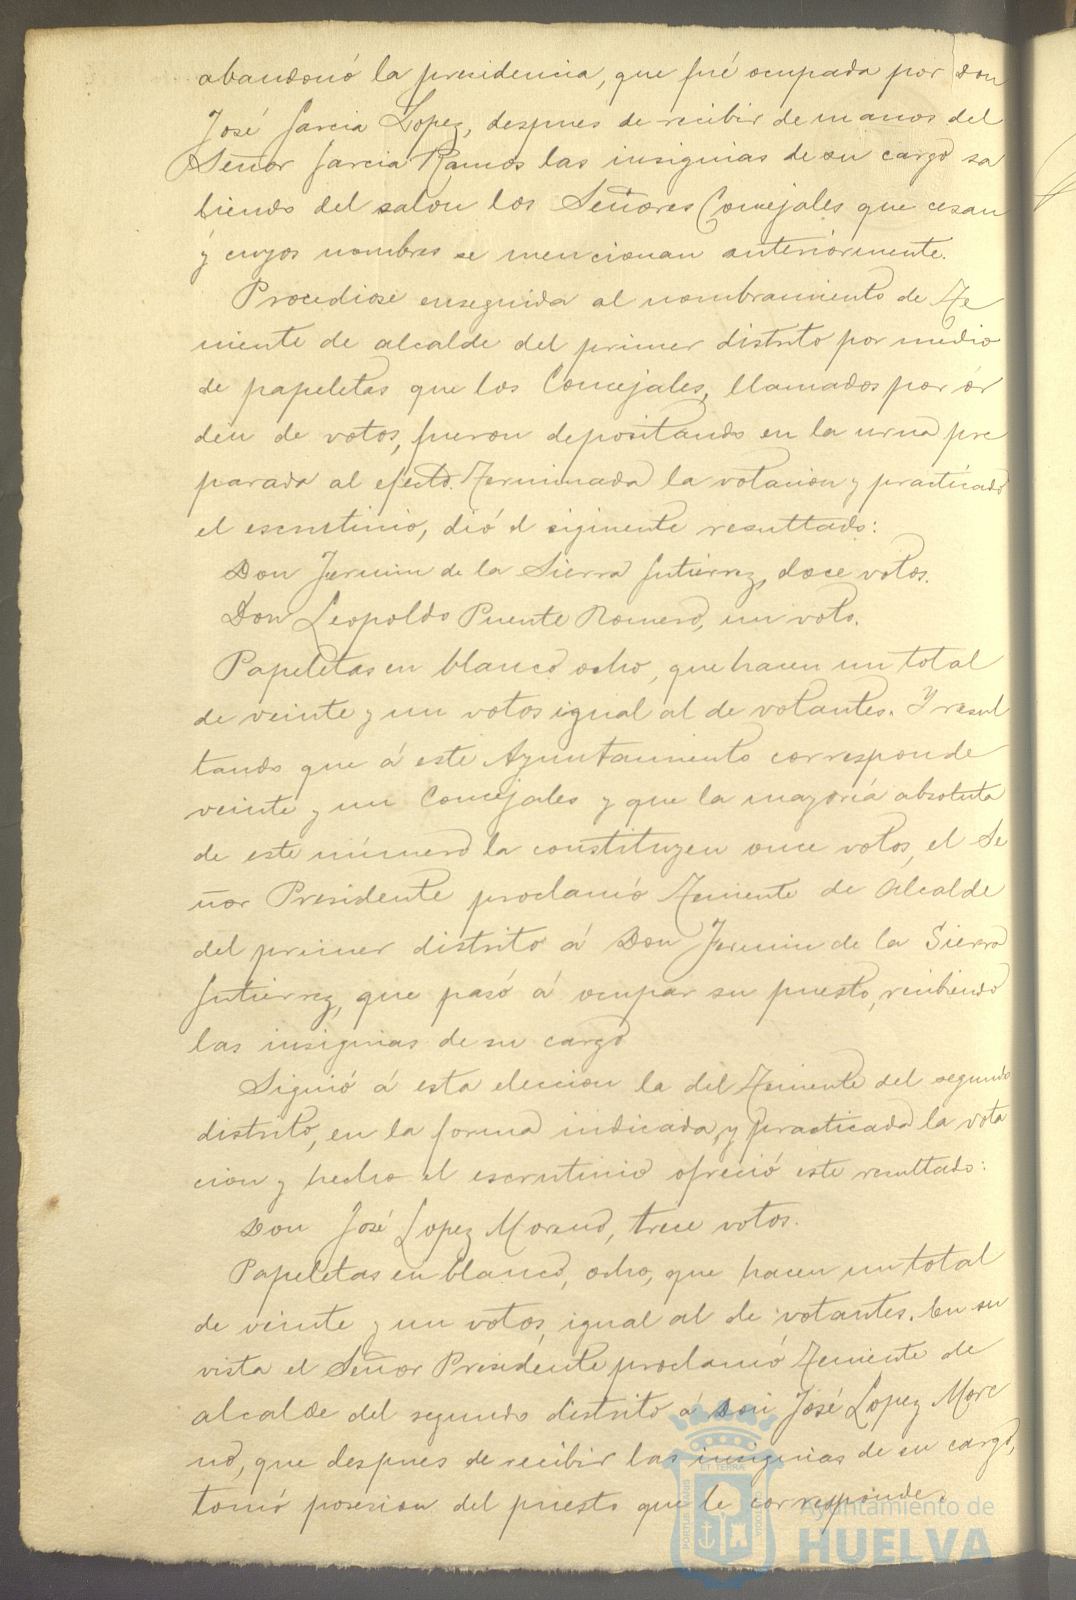 abandonó la presidencia, que fué ocupada por Don
José Garcia Lopez, despues de recibir de manos del
Señor Garcia Ramos las insignias de su cargo sa
liendo del salon los Señores Concejales que cesan
y cuyos nombres se mencionan anteriormente.
Procediose enseguida al nombramiento de Te
niente de alcalde del primer distrito por medio
de papeletas que los Concejales, llamados por ór
den de votos, fueron depositando en la urna pre
parada al efecto. Terminada la votacion y practicado
el escrutinio, dió el siguiente resultado:
Don Fermin de la Sierra Gutierrez, doce votos.
Don Leopoldo Puente Romero, un voto.
Papeletas en blanco ocho, que hacen un total
de veinte y un votos igual al de votantes. Y resul
tando que á este Ayuntamiento corresponde
veinte y un Concejales y que la mayoría absoluta
de este número la constituyen once votos, el Se
ñor Presidente proclamó Teniente de Alcalde
del primer distrito á Don Fermin de la Sierra
Gutierrez, que pasó á ocupar su puesto, recibiendo
las insignias de su cargo
Siguió á esta eleccion la del Teniente del segundo
distrito, en la forma indicada, y practicada la vota
cion y hecho el escrutinio ofreció este resultado:
Don José Lopez Moreno, trece votos.
Papeletas en blanco, ocho, que hacen un total
de veinte y un votos, igual al de votantes. En su
vista el Señor Presidente proclamó Teniente de
alcalde del segundo distrito á Don José Lopez More
no, que despues de recibir las insignias de su cargo,
tomó posesion del puesto que le corresponde.
PORTUS MARIS ET TERRAE CUSTODIA
Ayuntamiento de
HUELVA